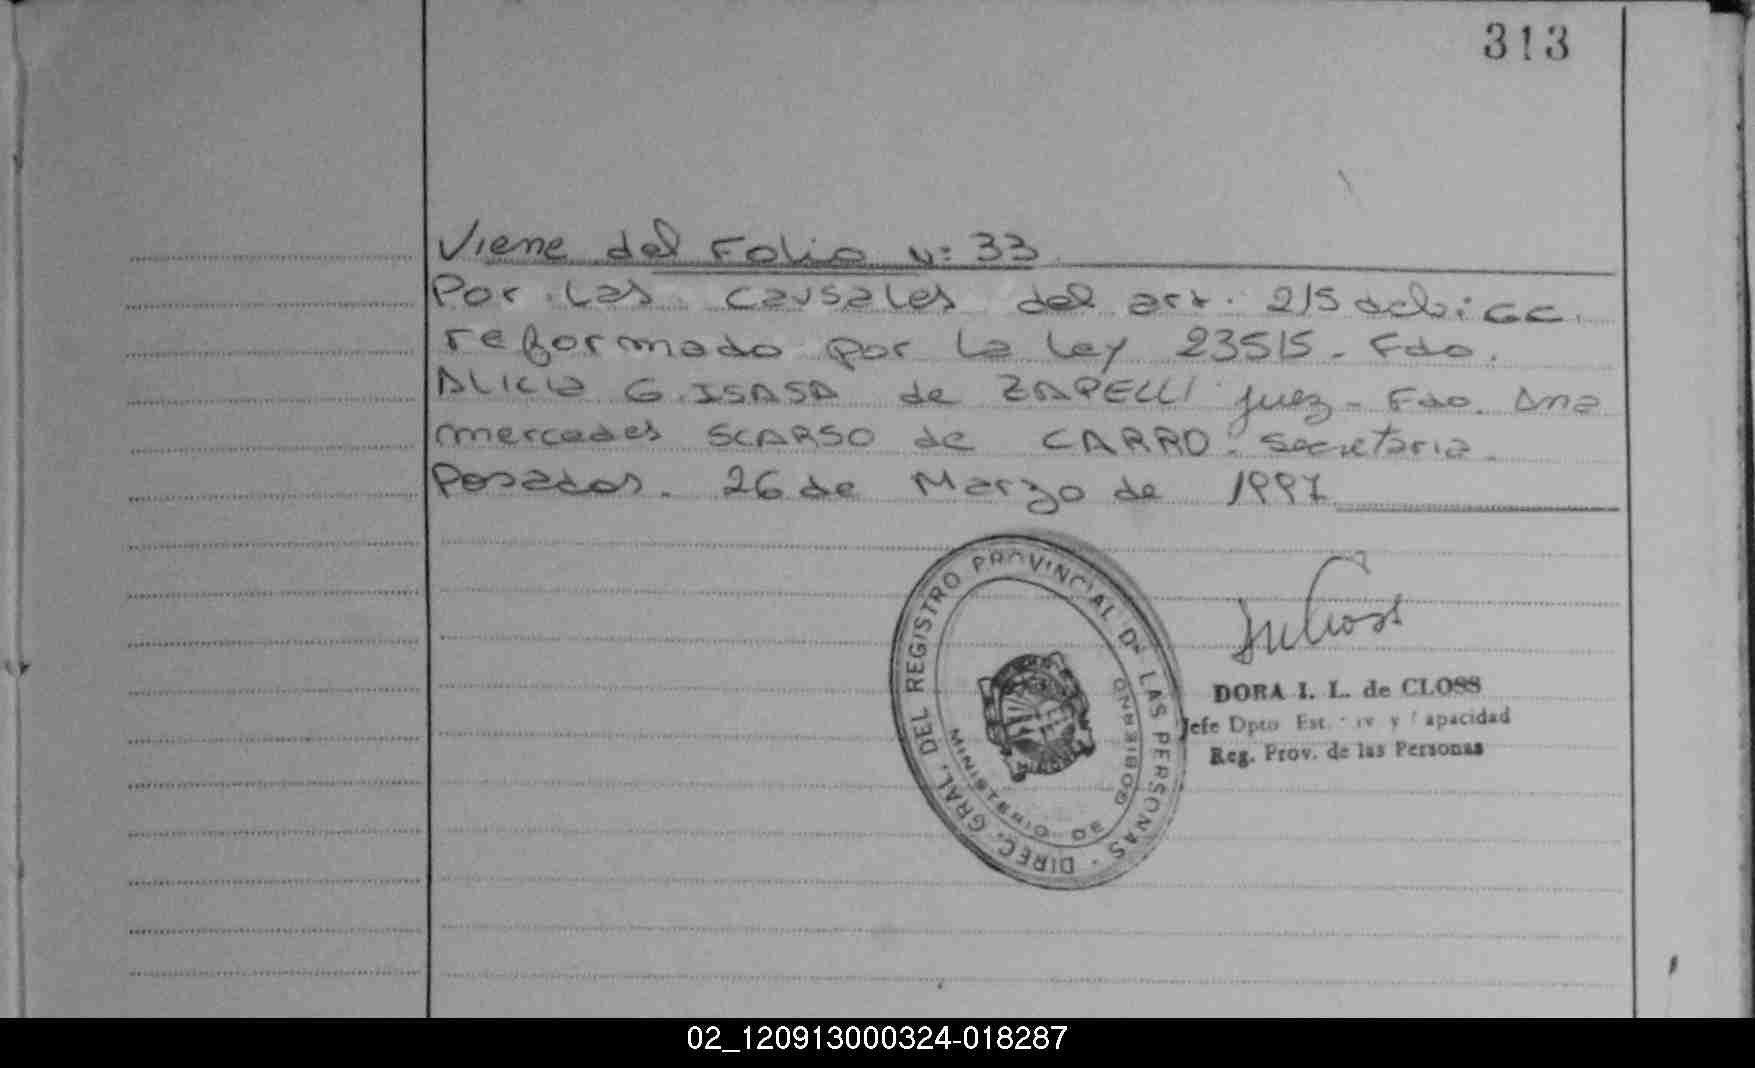 313
Viene del Folio N: 33
Por las causales del art. 215 del
reformado por la Ley 23515. Fdo.
Alicia G. ISASA de ZAPELLI juez - Fdo. Ana
mercedes SCARSO de CARRO. Secretaria.
Posadas. 26 de Marzo de 1997
DIREC. GRAL. DEL REGISTRO PROVINCIAL DE LAS PERSONAS
MINISTERIO DE GOBIERNO
DORA I. L. de CLOSS
Jefe Dpto Est. y Capacidad
Reg. Prov. de las Personas
02_120913000324-018287